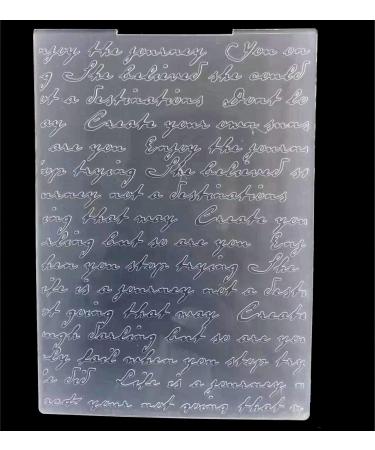 njoy the journey You on
g She believed she could
ot a destinations Dont lo
ay Create your own suns
are you Enjoy the journ
top trying She believed s
urney not a destinations
ing that way Create you
rling but so are you Enj
hen you stop trying She
ife is a journey not a desti
ot going that way Create
ugh darling but so are you
ly fail when you stop try
e did Life is a journey n
your not going that w